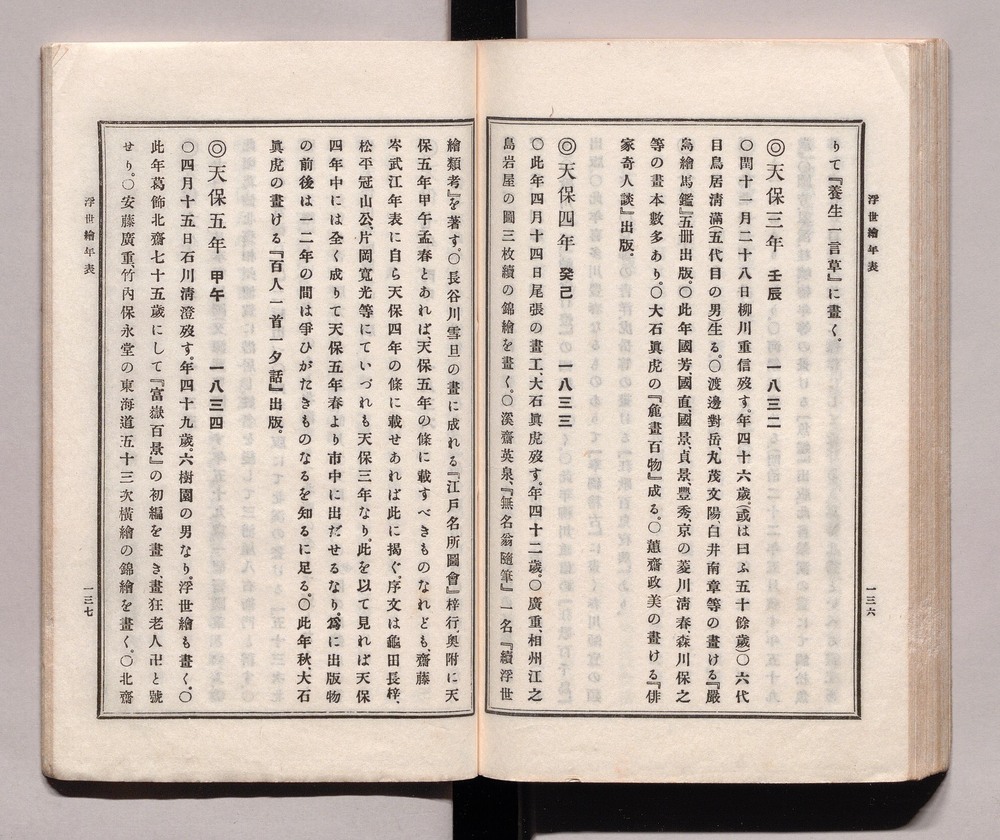 浮世繪年表
りて『養生一言草』に畫く。
◎天保三年 壬辰 一八三二
〇閏十一月二十八日柳川重信歿す。年四十六歲。(或は曰ふ五十餘歲)〇六代
目鳥居淸滿(五代目の男)生る。〇渡邊對岳、丸茂文陽、白井南章等の畫ける『嚴
島繪馬鑑』五冊出版。〇此年國芳、國直、國景、貞景、豐秀、京の菱川淸春、森川保之
等の畫本數多あり。〇大石眞虎の『麁畫百物』成る。〇蕙齋政美の畫ける『俳
家奇人談』出版。
◎天保四年 癸己 一八三三
〇此年四月十四日尾張の畫工、大石眞虎歿す。年四十二歲。〇廣重、相州江之
島岩屋の圖三枚續の錦繪を畫く。〇溪齋英泉、『無名翁隨筆』一名『續浮世
一三六
浮世繪年表
繪類考』を著す。〇長谷川雪旦の畫に成れる『江戶名所圖會』梓行、奧附に天
保五年甲午孟春とあれば、天保五年の條に載すべきものなれども、齋藤
岑武江年表に自ら天保四年の條に載せあれば此に揭ぐ。序文は龜田長梓、
松平冠山公、片岡寬光等にていづれも天保三年なり。此を以て見れば天保
四年中には全く成りて天保五年春より市中に出だせるなり。爲に出版物
の前後は一二年の間は爭ひがたきものなるを知るに足る。〇此年秋、大石
眞虎の畫ける『百人一首一夕話』出版。
◎天保五年 甲午 一八三四
〇四月十五日石川淸澄歿す。年四十九歲。六樹園の男なり。浮世繪も畫く。〇
此年葛飾北齋七十五歲にして『富嶽百景』の初編を畫き、畫狂老人卍と號
せり。〇安藤廣重、竹內保永堂の東海道五十三次橫繪の錦繪を畫く。〇北齋
一三七